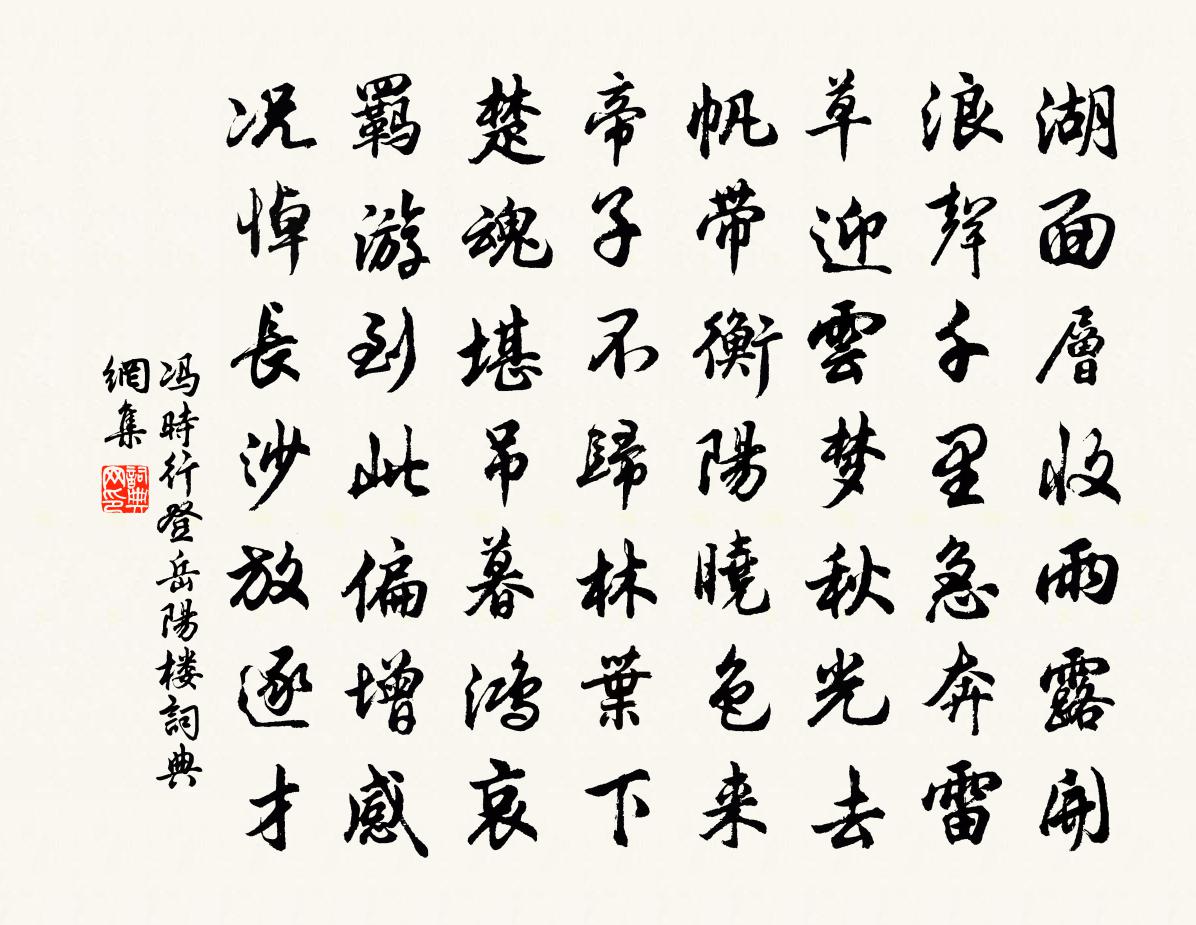 湖面層收雨露開
浪聲千里急奔雷
草迎雲梦秋光去
帆带衡陽曉色来
帝子不歸林葉下
楚魂堪吊暮鴻哀
羈游到此偏增感
况悼長沙放逐才
冯時行登岳陽楼詞典
網集
詞典
网印